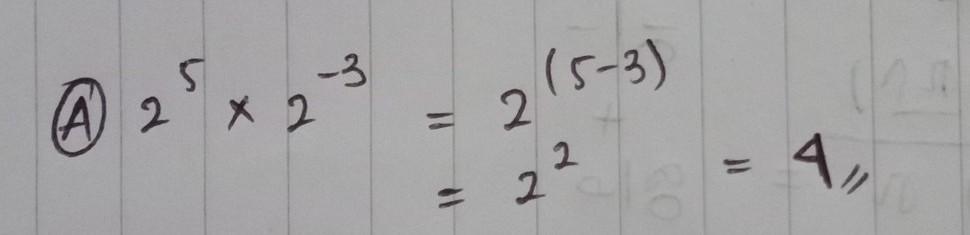 (A) 2^5 × 2^-3 = 2^(5-3)
= 2^2 = 4,,